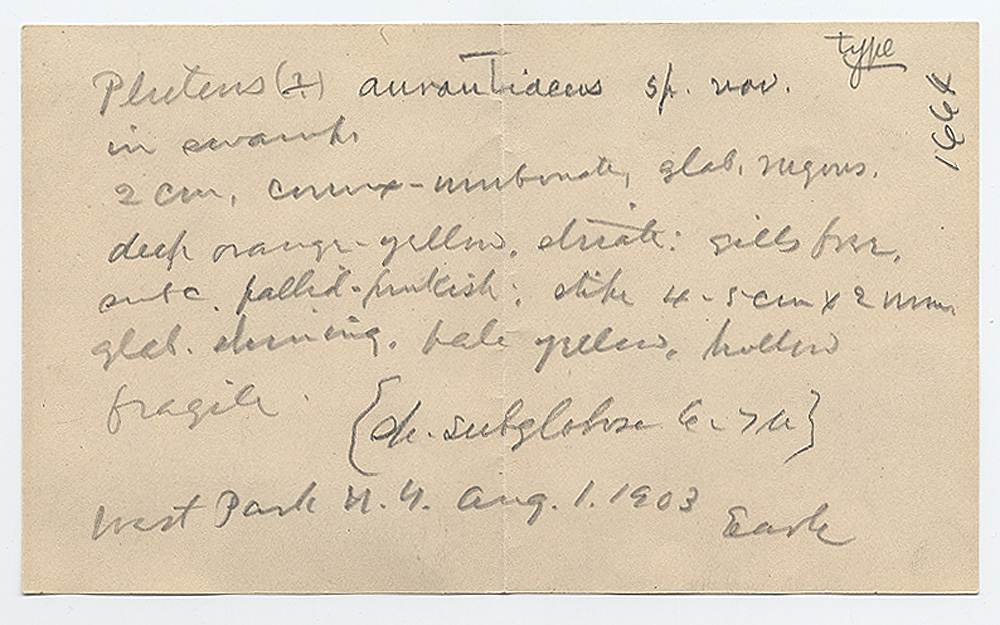 type
Pluteus (?) aurantiacus sp. nov.
1664
in swamp.
2 cm, convex-umbonate, glab. rugous.
deep orange-yellow, striate: gills free,
subc. pallid-pinkish; stipe 4-5 cm x 2 mm.
glab. shining. pale yellow, hollow
fragile.
{sp. subglobose 6-7 u}
West Park N.Y. Aug. 1. 1903
Earle